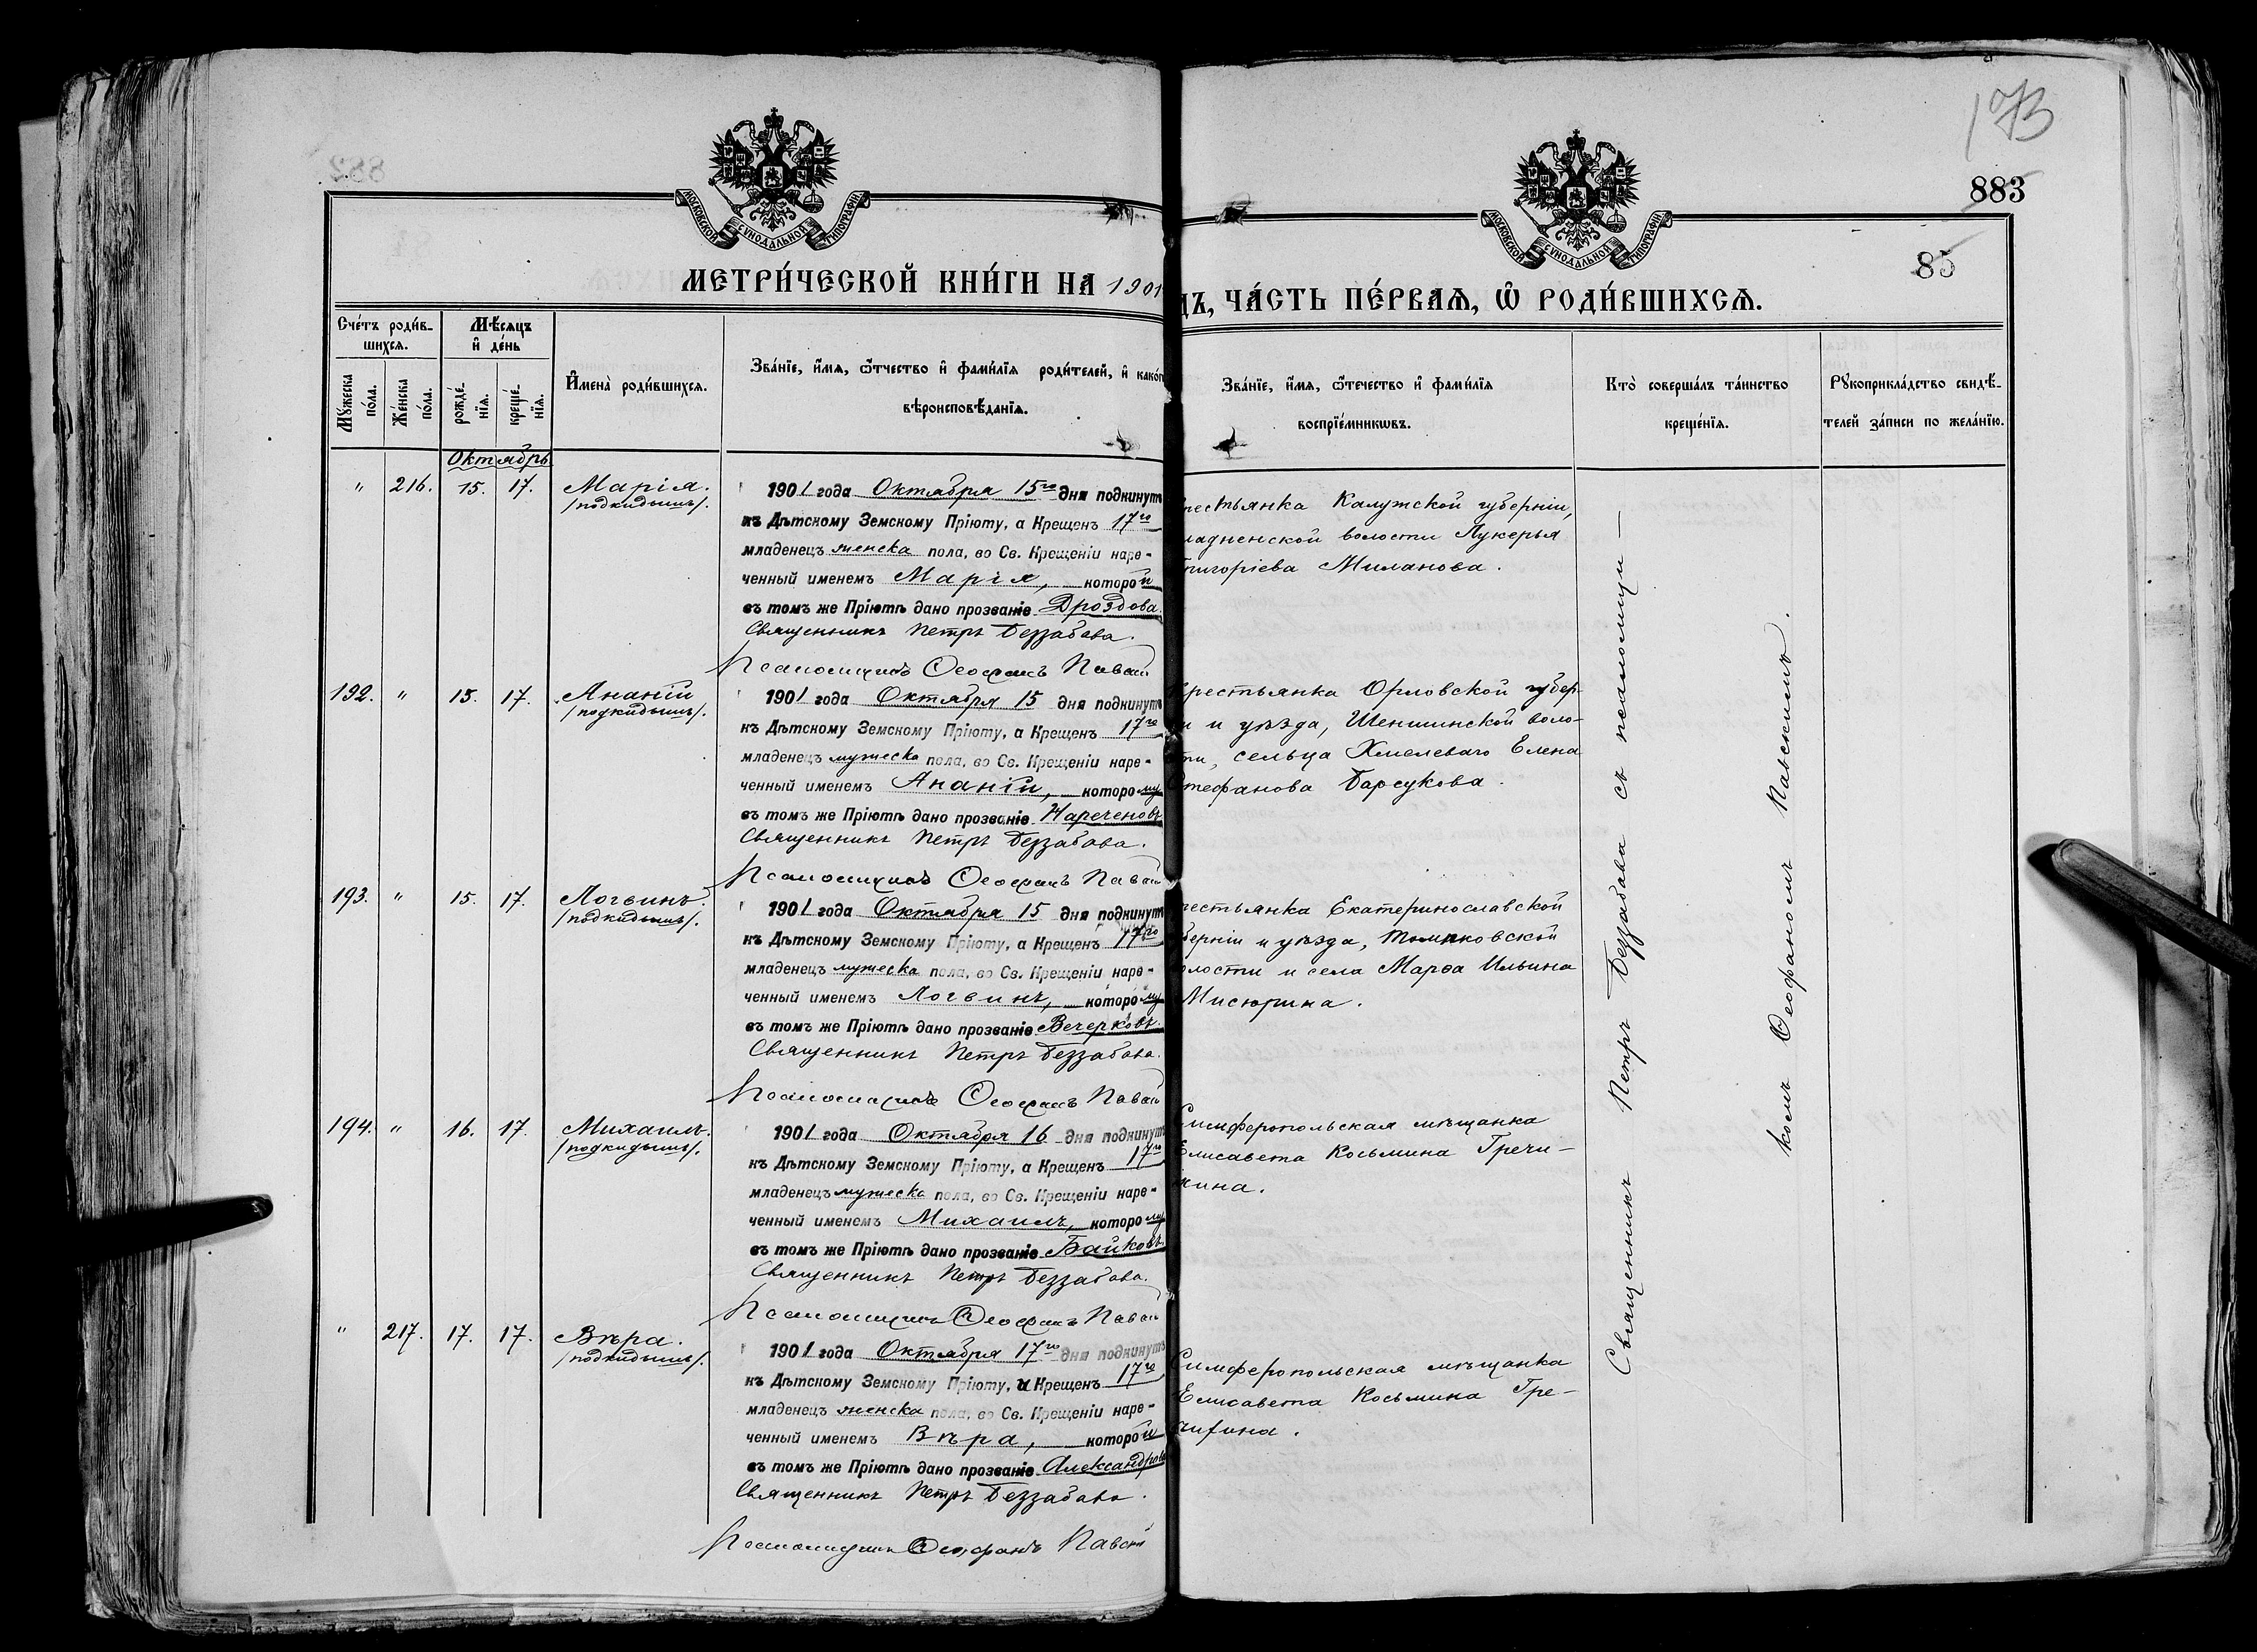 173
883
85
МОСКОВСКОЙ СѴНОДАЛЬНОЙ ТИПОГРАФІИ
МОСКОВСКОЙ СѴНОДАЛЬНОЙ ТИПОГРАФІИ
МЕТРИ́ЧЕСКОЙ КНИ́ГИ НА 1901
ДЪ, ЧА́СТЬ ПЕ́РВАѦ, Ѡ РОДИ́ВШИХСѦ.
Сче́тъ роди́в-
шихсѧ.
Мѣ́сѧцъ
и҆ де́нь
Мꙋ́жеска
по́ла.
Же́нска
по́ла.
рожде́-
нїѧ.
креще́-
нїѧ.
И҆мена̀ роди́вшихсѧ.
Зва́нїе, и҆́мѧ, ѻ҆́тчество и҆ фами́лїѧ роди́телей, и҆ како́г
вѣроисповѣ́данїѧ.
Зва́нїе, и҆́мѧ, ѻ҆́течество и҆ фами́лїѧ
воспрїе́мникѡвъ.
Кто̀ соверша́лъ та́инство
креще́нїѧ.
Рꙋкоприкла́дство свидѣ́-
телей за́писи по жела́нїю.
Октябрь
" 216. 15. 17. Марія.
/подкидышъ/.
1901 года Октября 15го дня подкинутъ
къ Дѣтскому Земскому Пріюту, а Крещенъ 17го
младенецъ женска пола, во Св. Крещеніи наре-
ченный именемъ Марія, которой
въ томъ же Пріютѣ дано прозваніе Дроздова.
Священникъ Петръ Беззабава.
Псаломщикъ Ѳеофанъ Павск
рестьянка Калужской губерніи,
ладненской волости Лукерья
ригоріева Миланова.
192. " 15. 17. Ананій
/подкидышъ/.
1901 года Октября 15 дня подкинутъ
къ Дѣтскому Земскому Пріюту, а Крещенъ 17го
младенецъ мужеска пола, во Св. Крещеніи наре-
ченный именемъ Ананій, которому
въ томъ же Пріютѣ дано прозваніе Нареченовъ
Священникъ Петръ Беззабава.
Псаломщикъ Ѳеофанъ Павск
Крестьянка Орловской губер-
и и уѣзда, Шеншинской воло-
ти, сельца Хмелеваго Елена
Стефанова Барсукова.
193. " 15. 17. Логвинъ.
/подкидышъ/.
1901 года Октября 15 дня подкинутъ
къ Дѣтскому Земскому Пріюту, а Крещенъ 17го
младенецъ мужеска пола, во Св. Крещеніи наре-
ченный именемъ Логвинъ, которому
въ томъ же Пріютѣ дано прозваніе Вечерковъ.
Священникъ Петръ Беззабава.
Псаломщикъ Ѳеофанъ Павск
рестьянка Екатеринославской
берніи и уѣзда, Томаковской
олости и села Марѳа Ильина
Мисюрина.
194. " 16. 17. Михаилъ.
/подкидышъ/.
1901 года Октября 16 дня подкинутъ
къ Дѣтскому Земскому Пріюту, а Крещенъ 17го
младенецъ мужеска пола, во Св. Крещеніи наре-
ченный именемъ Михаилъ, которому
въ томъ же Пріютѣ дано прозваніе Байковъ.
Священникъ Петръ Беззабава.
Псаломщикъ Ѳеофанъ Павск
Симферопольская мѣщанка
Елисавета Косьмина Гречи-
хина.
" 217. 17. 17. Вѣра.
/подкидышъ/.
1901 года Октября 17го дня подкинутъ
къ Дѣтскому Земскому Пріюту, и Крещенъ 17го
младенецъ женска пола, во Св. Крещеніи наре-
ченный именемъ Вѣра, которой
въ томъ же Пріютѣ дано прозваніе Александрова
Священникъ Петръ Беззабава.
Псаломщикъ Ѳеофанъ Павскі
Симферопольская мѣщанка
Елисавета Косьмина Гре-
чихина.
Священникъ Петръ Беззабава съ псаломщи-
комъ Ѳеофаномъ Павскимъ.